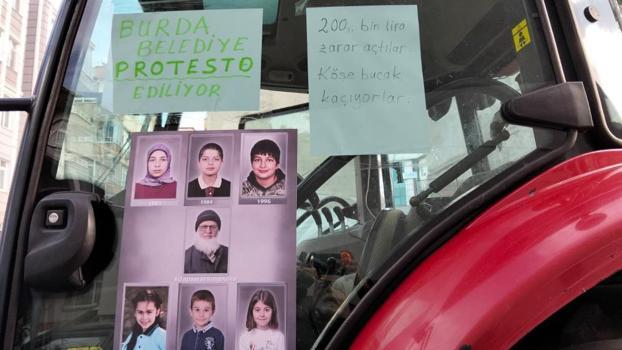 BURDA
BELEDİYE
PROTESTO
EDİLİYOR
200.. bin lira
zarar açtılar
Köse bucak
kaçıyorlar.
1984
1996